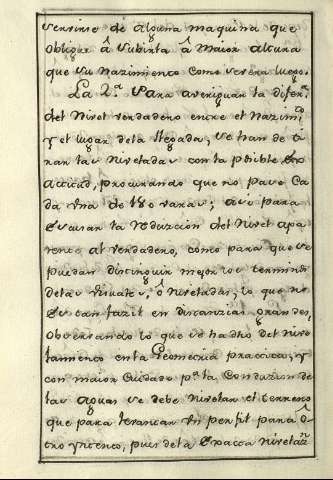 servirse de alguna maquina que
obligue â subirla â maior altura
que su nazimiento como se vera luego.
La 2.ª Para averiguar la difer.ª
del Nivel verdadero entre el Nazim.to
y el lugar de la llegada, se han de ti
rar las Niveladas con la posible Ex
actitud, procurando que no pase Ca
da vna de 180 varas; asi para
Escusar la reduzcion del Nivel apa
rente al verdadero, como para que se
puedan distinguir mejor los terminos
de las visuales, ô Niveladas, lo que no
es tan fazil en distanzias grandes,
observando lo que se ha dho del nive
lamiento en la Geometria practica, y
con maior Cuidado p.ª la Conduzion de
las aguas se debe Nivelar el terreno
que para levantar vn perfil para ô
tro yntento, pues de la Exacta Nivelaz.n